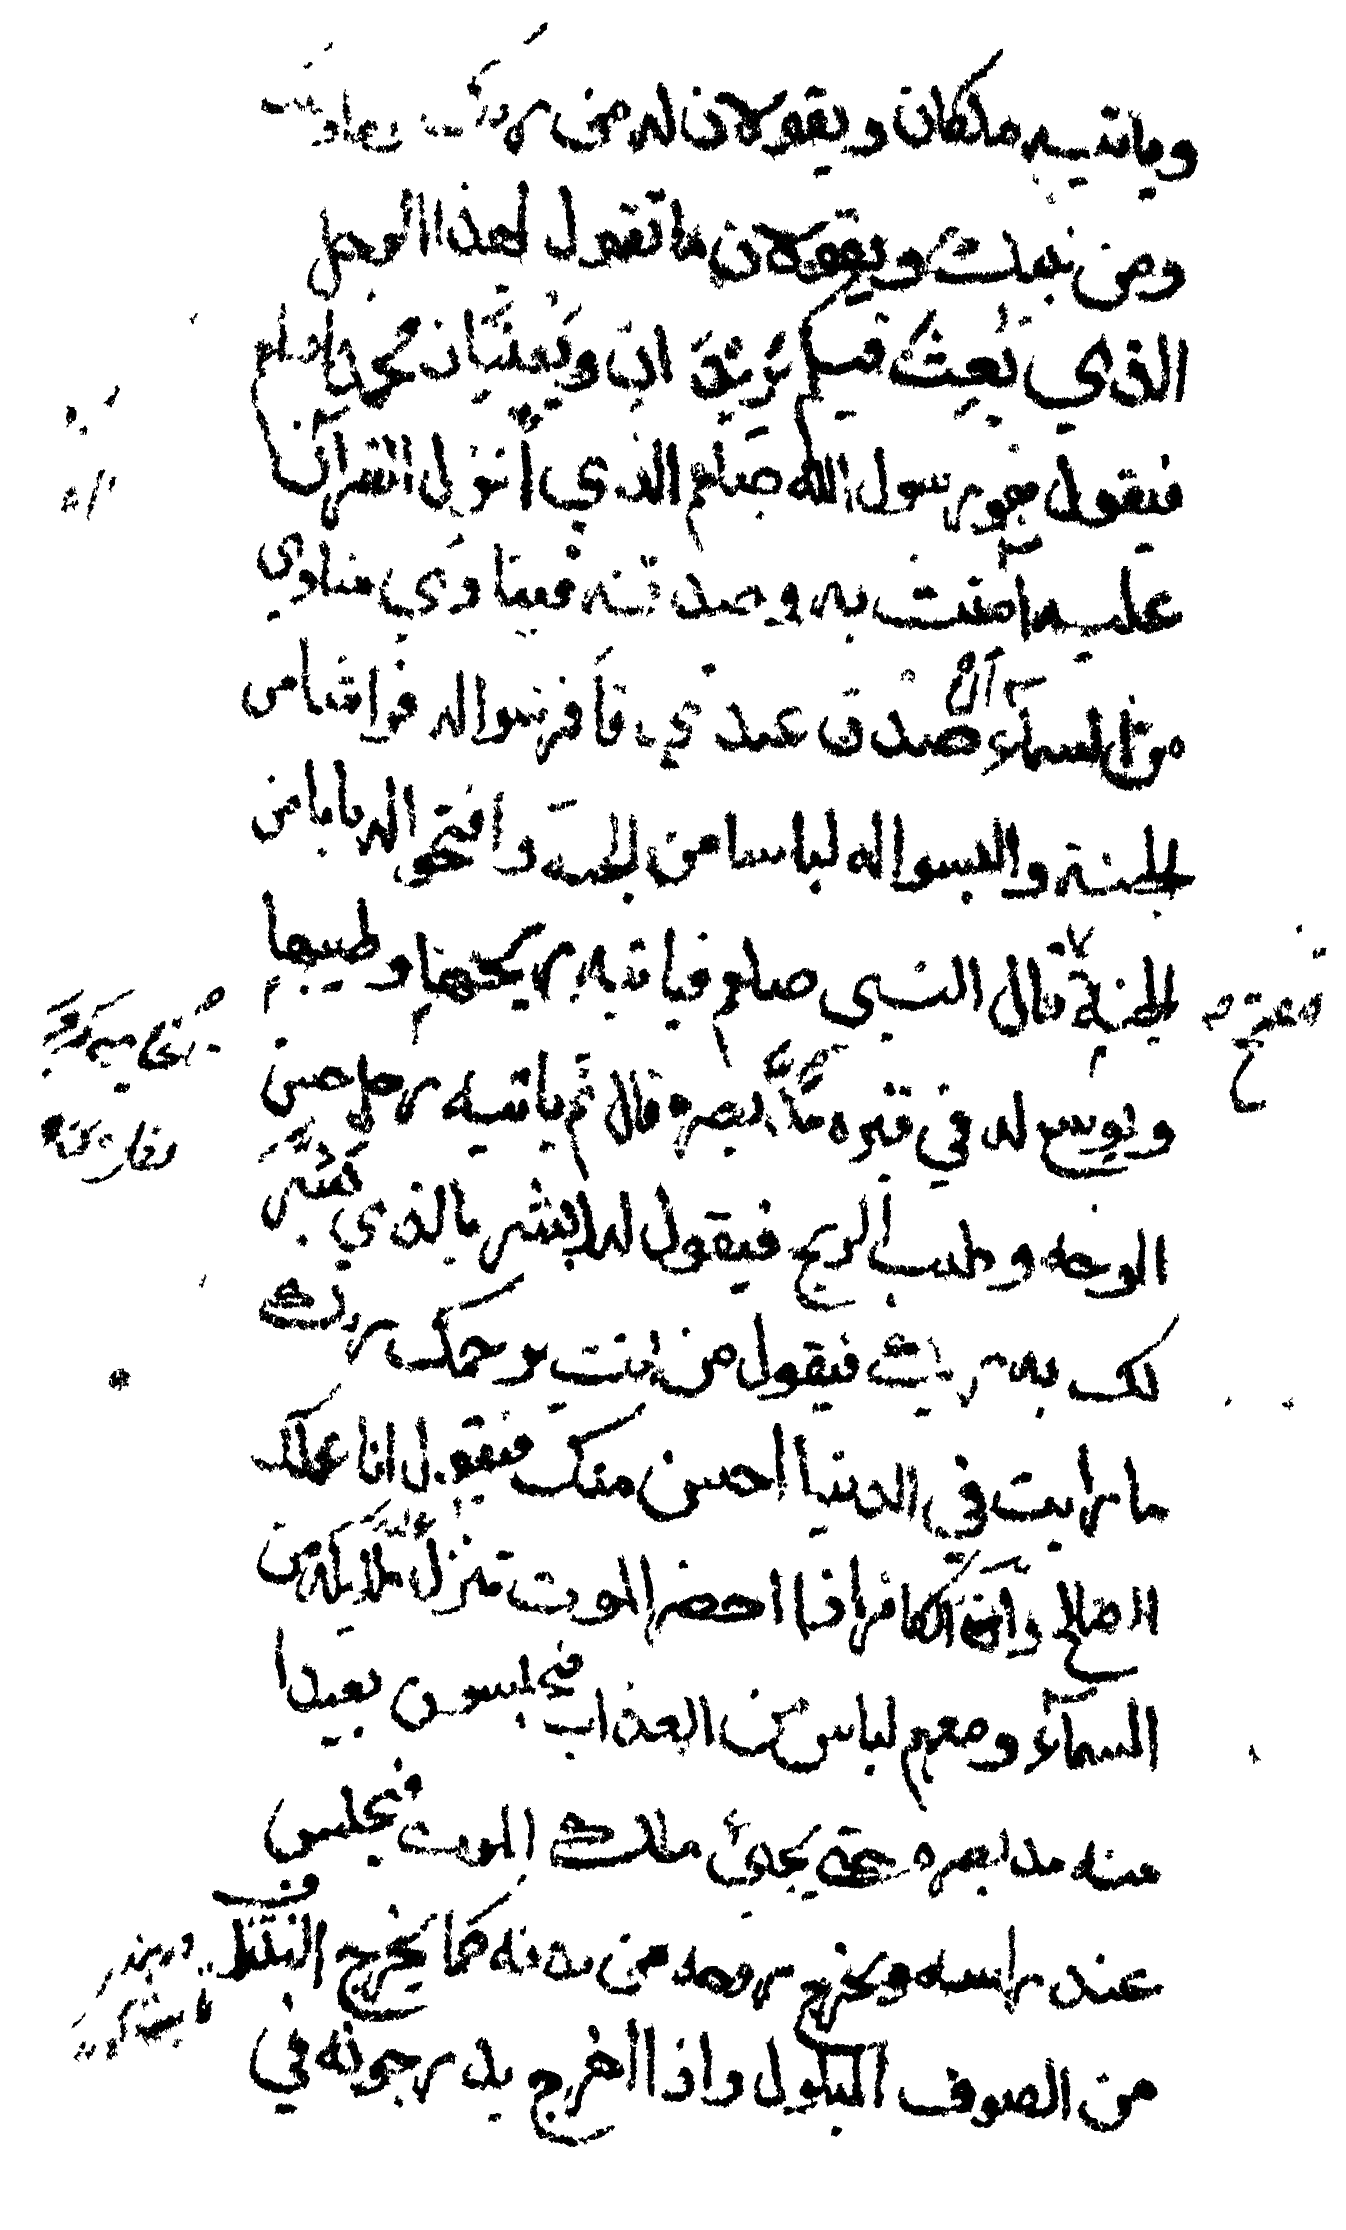 وياتيه ملكان ويقولان له من ربك وما دينك
ومن نبيك ويقولان ما تقول لهذا الرجل
الذي بُعِث فيكم يعنيان محمدا صلعم
فيقول هو رسول الله صلعم الذي أنزل القرآن
عليه آمنت به وصدقته فينادي منادي
من السماء أن صدق عبدي فافرشوا له فراشا من
الجنة والبسوا له لباسا من الجنة وافتحوا له بابا من
الجنة قال النبي صلعم فياتيه ريحها وطيبها
ويوسع له في قبره مد بصره قال ثم ياتيه رجل حسن
الوجه وطيب الريح فيقول له ابشر بالذي
لك به ربك فيقول من انت يرحمك ربك
ما رايت في الدنيا احسن منك فيقول انا عملك
الصالح وان الكافر اذا احضر الموت تنزل ملائكة من
السماء ومعهم لباس من العذاب فيجلسون بعيدا
منه مد بصره حتى يجئ ملك الموت فيجلس
عند راسه ويخرج روحه من بدنه كما يخرج
من الصوف المبلول واذا اخرج روحه في